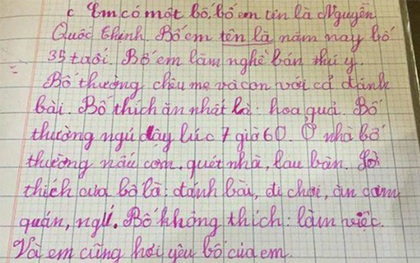 c Em có một bố, bố em tên là Nguyễn
Quốc Khánh Bố em tên là năm nay bố
35 tuổi. Bố em làm nghề bán thú y.
Bố thường chều mẹ và con với cả đánh
bài. Bố thích ăn nhất là: hoa quả. Bố
thường ngủ dậy lúc 7 giờ 60. Ở nhà bố
thường nấu cơm, quét nhà, lau bàn. Sở
thích của bố là: đánh bài, đi chơi, ăn cơm
quán, ngủ. Bố không thích: làm việc.
Và em cũng hơi yêu bố của em.